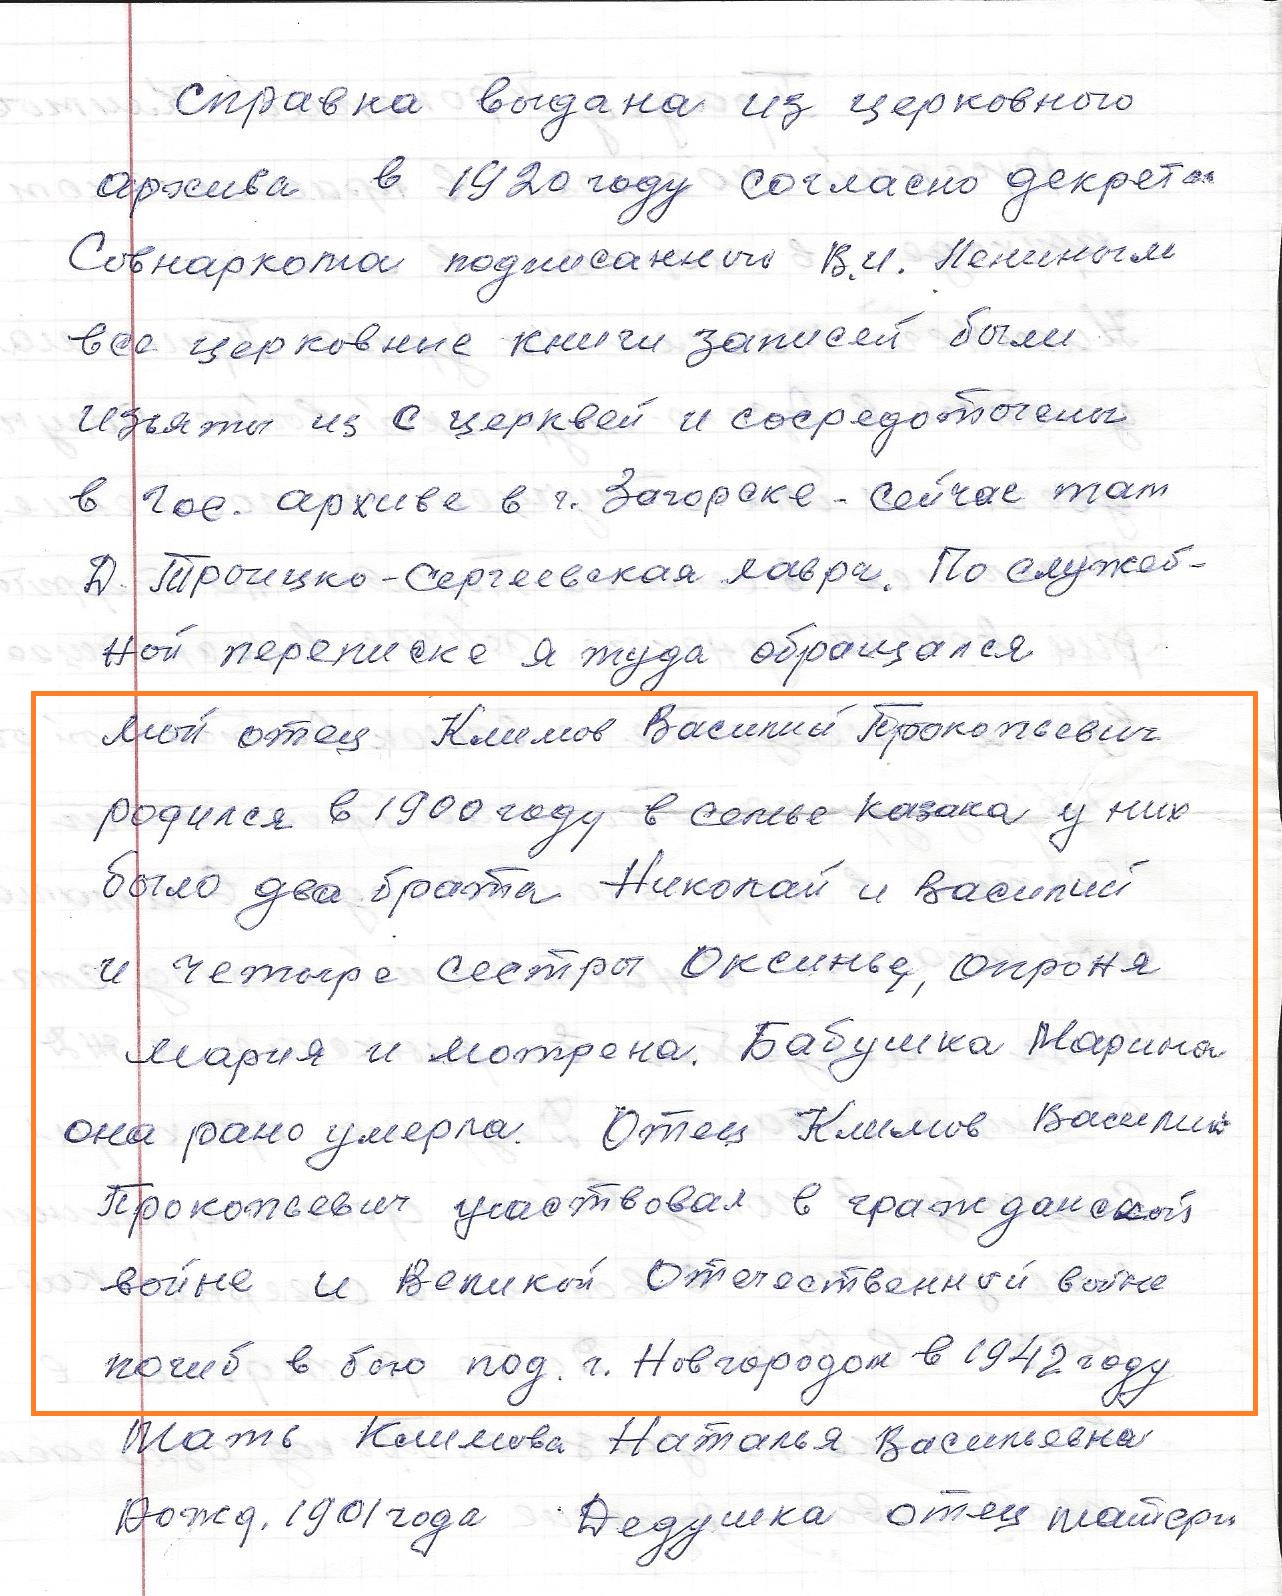 справка выдана из церковного
архива в 1920 году согласно декрета
Совнаркома подписанного В.И. Лениным
все церковные книги записей были
изъяты из с церквей и сосредоточены
в Гос. архиве в г. Загорске - сейчас там
Троицко-Сергеевская лавра. По служеб-
ной переписке я туда обращался
мой отец Климов Василий Прокопьевич
родился в 1900 году в семье казака у них
было два брата Николай и Василий
и четыре сестры Оксинья, Опроня
Мария и Мотрена. Бабушка Марина
она рано умерла. Отец Климов Василий
Прокопьевич участвовал в гражданской
войне и Великой Отечественной войне
погиб в бою под г. Новгородом в 1942 году
Мать Климова Наталья Васильевна
1901 года Дедушка отец матери